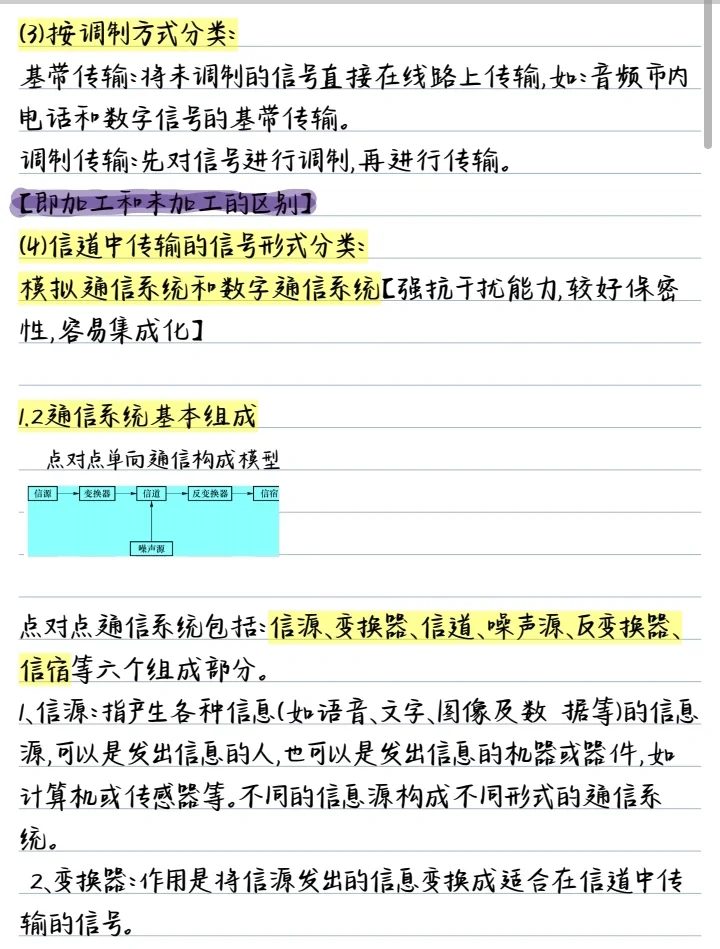 (3)按调制方式分类:
基带传输:将未调制的信号直接在线路上传输,如:音频市内
电话和数字信号的基带传输。
调制传输:先对信号进行调制,再进行传输。
【即加工和未加工的区别】
(4)信道中传输的信号形式分类:
模拟通信系统和数字通信系统【强抗干扰能力,较好保密
性,容易集成化】
1.2通信系统基本组成
点对点单向通信构成模型
信源 变换器 信道 反变换器 信宿
噪声源
点对点通信系统包括:信源、变换器、信道、噪声源、反变换器、
信宿等六个组成部分。
1、信源:指产生各种信息(如语音、文字、图像及数 据等)的信息
源,可以是发出信息的人,也可以是发出信息的机器或器件,如
计算机或传感器等。不同的信息源构成不同形式的通信系
统。
2、变换器:作用是将信源发出的信息变换成适合在信道中传
输的信号。